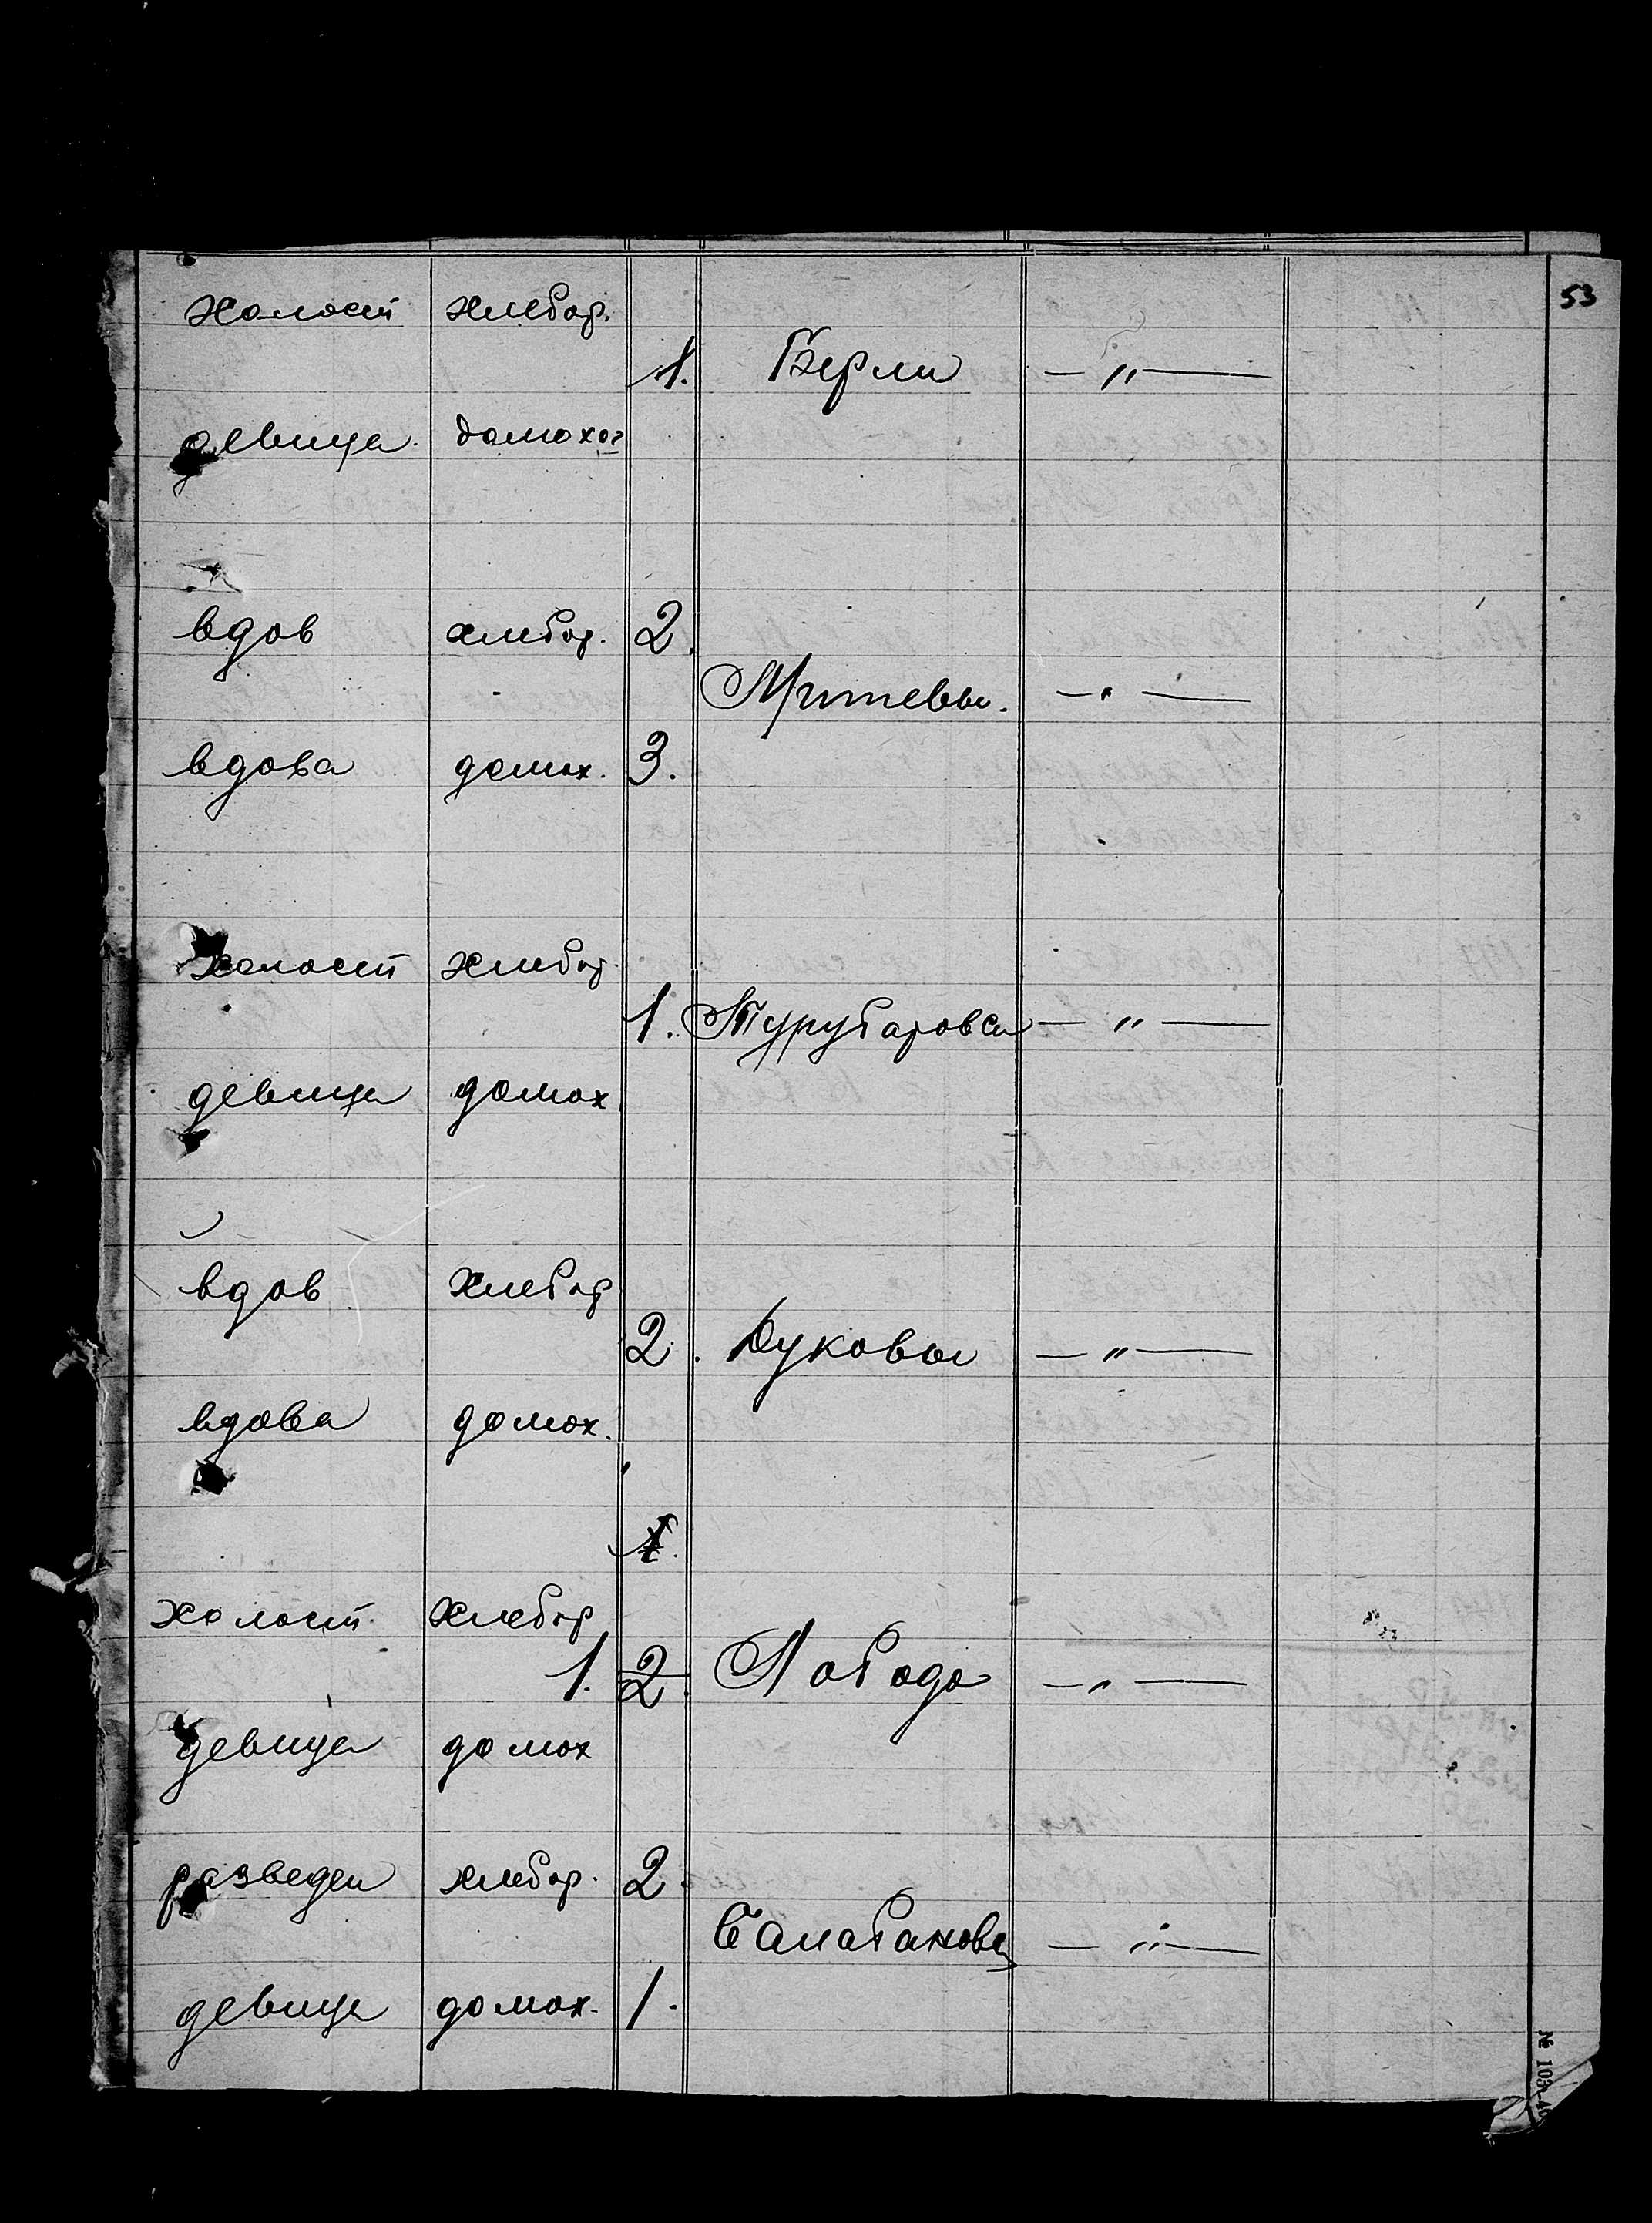 53
холост хлебор.
1. Берли — " —
девица домохоз
вдов хлебор. 2.
— " —
вдова домох. 3.
холост хлебор.
1. Турубаровы — " —
девица домох
вдов хлебор
2. Дуковы — " —
вдова домох.
1.
холост. хлебор
1. 2. Лобода — " —
девица домох
разведен хлебор. 2.
Балабановы — " —
девица домох. 1.